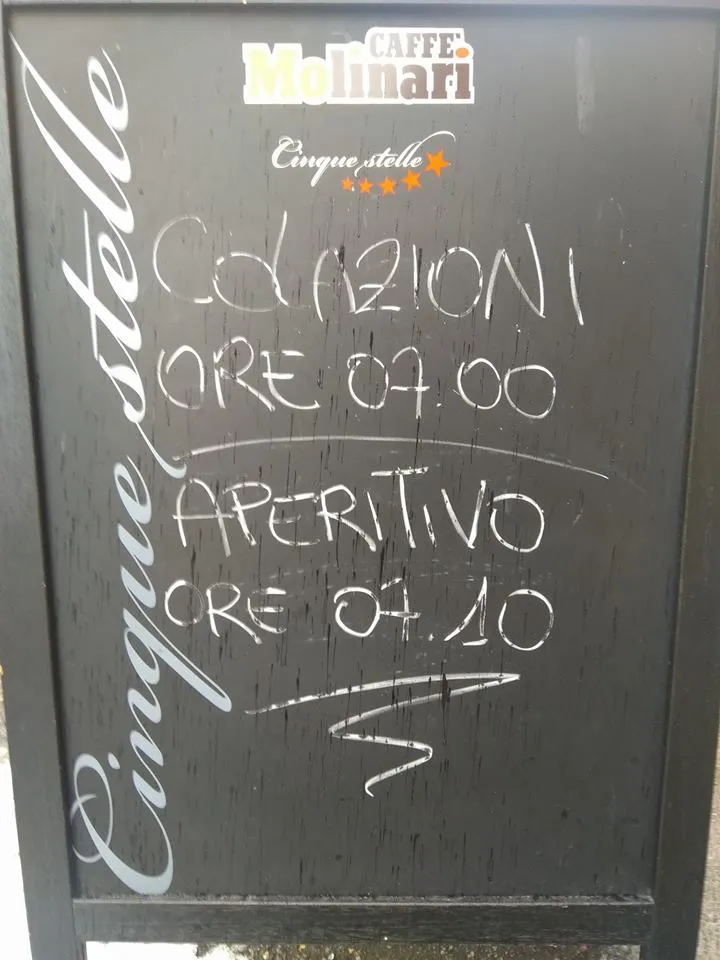 CAFFE'
Molinari
Cinque stelle
COLAZIONI
ORE 07.00
APERITIVO
ORE 07.10
Cinque stelle